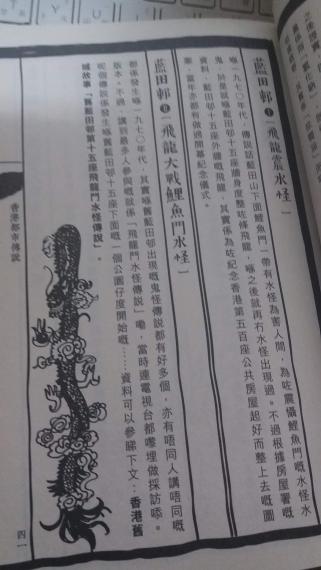 藍田邨「飛龍震水怪」
喺一九七〇年代，傳說話藍田山下面鯉魚門一帶有水怪為害人間，為咗震懾鯉魚門嘅水怪水
鬼，於是就喺藍田邨十五座牆身度整咗條飛龍，喺之後就再冇水怪出現過。不過根據房屋署嘅
資料，藍田邨十五座外牆嘅飛龍，其實係為咗紀念香港第五百座公共房屋起好而整上去嘅圖
案，當年亦都有做過開幕紀念儀式。
藍田邨「飛龍大戰鯉魚門水怪」
都係發生喺一九七〇年代，其實喺舊藍田邨出現嘅鬼怪傳說都有好多個，亦有唔同人講唔同嘅
版本。不過，講到最多人參與嘅就係「飛龍鬥水怪傳說」嘞，當時連電視台都嚟埋做採訪添。
呢個傳說係發生喺舊藍田邨第十五座下面嘅一個公園仔度開始嘅……資料可以參睇下文：香港舊
城故事「舊藍田邨第十五座飛龍鬥水怪傳說」。
香港都市傳說
四一